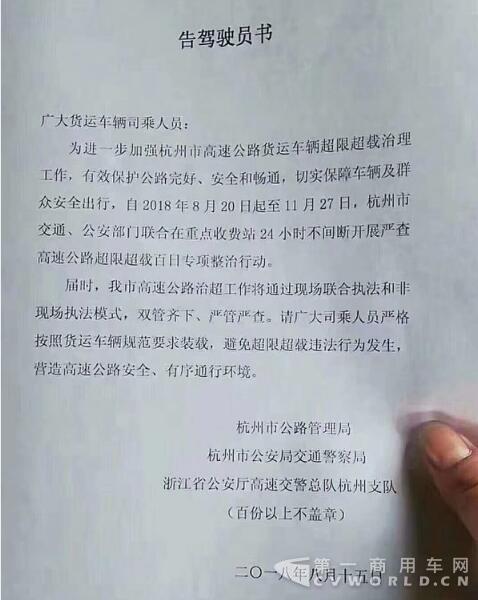 告驾驶员书
广大货运车辆司乘人员：
为进一步加强杭州市高速公路货运车辆超限超载治理
工作，有效保护公路完好、安全和畅通，切实保障车辆及群
众安全出行，自 2018 年 8 月 20 日起至 11 月 27 日，杭州市
交通、公安部门联合在重点收费站 24 小时不间断开展严查
高速公路超限超载百日专项整治行动。
届时，我市高速公路治超工作将通过现场联合执法和非
现场执法模式，双管齐下、严管严查。请广大司乘人员严格
按照货运车辆规范要求装载，避免超限超载违法行为发生，
营造高速公路安全、有序通行环境。
杭州市公路管理局
杭州市公安局交通警察局
浙江省公安厅高速交警总队杭州支队
（百份以上不盖章）
二〇一八年八月十五日
第一商用车网
CVWORLD.CN